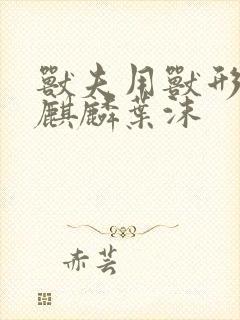 獸夫用獸形
麒麟葉沫
赤芸